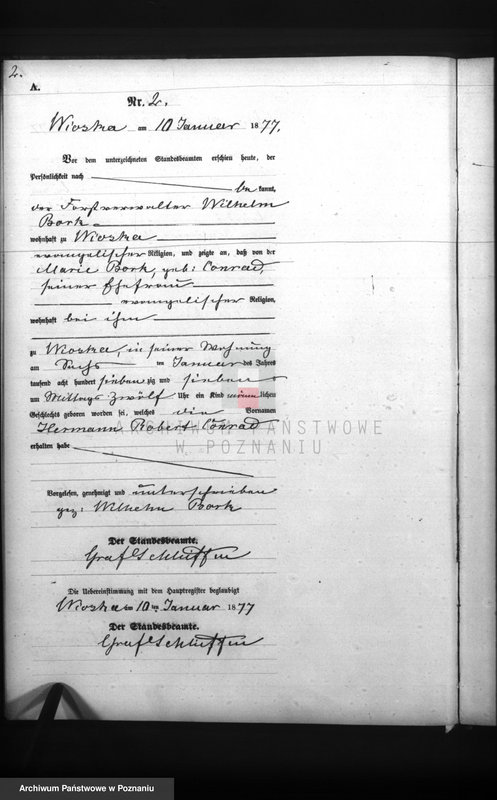 2.
A.
Nr. 2.
Wioska am 10 Januar 1877.
Vor dem unterzeichneten Standesbeamten erschien heute, der
Persönlichkeit nach
be kannt,
der Forstverwalter Wilhelm
Bork
wohnhaft zu Wioska
evangelischer Religion, und zeigte an, daß von der
Marie Bork, geb: Conrad,
seiner Ehefrau
evangelischer Religion,
wohnhaft bei ihm
zu Wioska, in seiner Wohnung
am Sechs ten Januar des Jahres
tausend acht hundert sieben zig und sieben
um Mittags Zwölf Uhr ein Kind männlichen
Geschlechts geboren worden sei, welches die Vornamen
Hermann Robert Conrad
erhalten habe
ARCHIWUM PAŃSTWOWE
W POZNANIU
Vorgelesen, genehmigt und unterschrieben
gez: Wilhelm Bork
Der Standesbeamte.
Graf
Die Uebereinstimmung mit dem Hauptregister beglaubigt
Wioska am 10 ten Januar 1877
Der Standesbeamte.
Graf
Archiwum Państwowe w Poznaniu